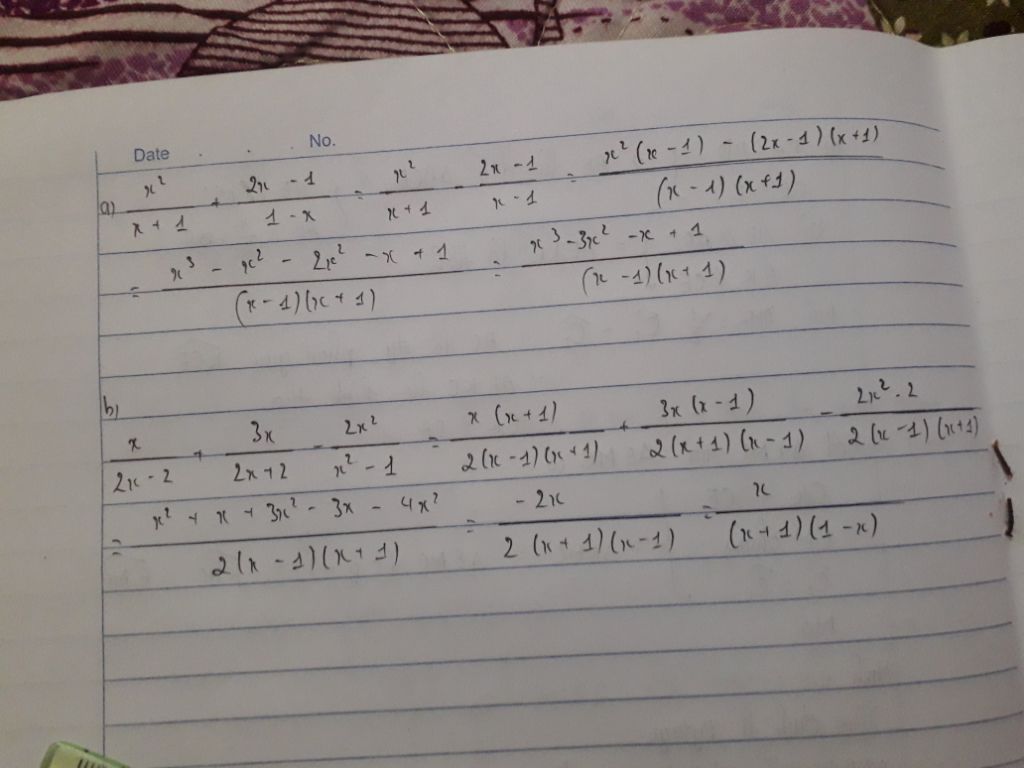 Date . . No.
a) x²/(x + 1) + (2x - 1)/(1 - x) = x²/(x + 1) - (2x - 1)/(x - 1) = (x² (x - 1) - (2x - 1)(x + 1))/((x - 1)(x + 1))
= (x³ - x² - 2x² - x + 1)/((x - 1)(x + 1)) = (x³ - 3x² - x + 1)/((x - 1)(x + 1))
b)
x/(2x - 2) + 3x/(2x + 2) - 2x²/(x² - 1) = x (x + 1)/(2(x - 1)(x + 1)) + 3x (x - 1)/(2(x + 1)(x - 1)) - 2x² . 2/(2(x - 1)(x + 1))
= (x² + x + 3x² - 3x - 4x²)/(2(x - 1)(x + 1)) = -2x/(2 (x + 1)(x - 1)) = x/((x + 1)(1 - x))